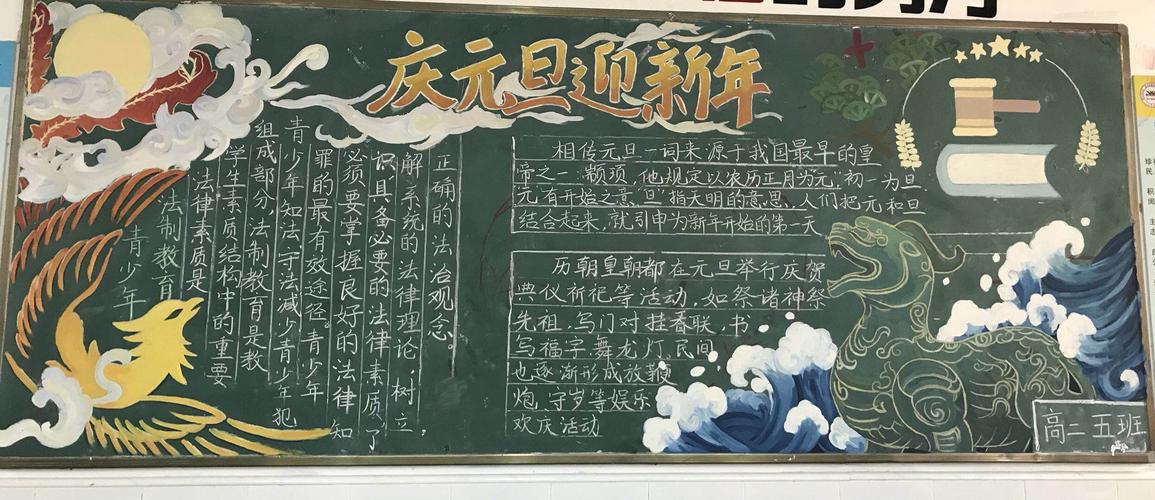 庆元旦迎新年
青少年
法制教育
法律素质是
学生素质结构中的重要
组成部分,法制教育是教
青少年知法守法减少青少年犯
罪的最有效途径。青少年
必须要掌握良好的法律知
识具备必要的法律素质,了
解系统的法律理论,树立
正确的法治观念。
相传元旦一词来源于我国最早的皇
帝之一:颛顼,他规定以农历正月为元,"初一为旦
元有开始之意,旦"指天明的意思,人们把元和旦
结合起来,就引申为新年开始的第一天
历朝皇朝都在元旦举行庆贺
典仪祈祀等活动,如祭诸神祭
先祖,写门对挂春联,书
写福字、舞龙灯,民间
也逐渐形成放鞭
炮,守岁等娱乐
欢庆活动
高二五班